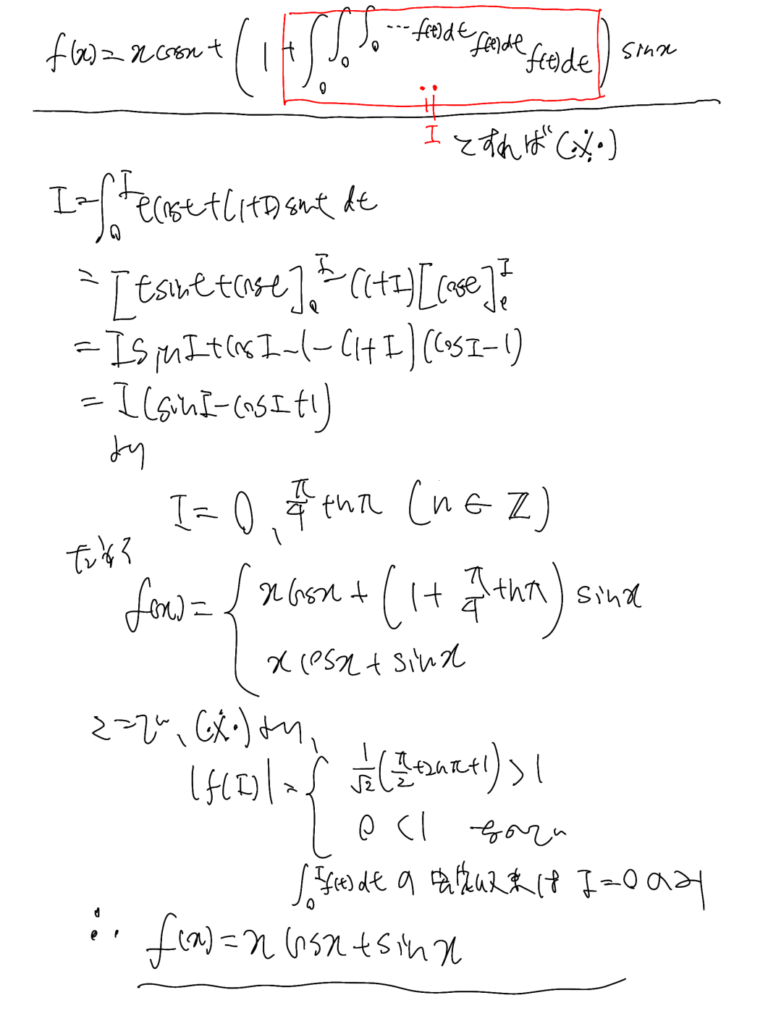 f(x) = x cos x + (1 + ∫₀ ∫₀ ∫₀ ⋯ f(t)dt f(t)dt f(t)dt) sin x
I とすれば (※)
I = ∫₀^I t cos t + (1+I) sin t dt
= [t sin t + cos t]₀^I - (1+I)[cos t]₀^I
= I sin I + cos I - 1 - (1+I)(cos I - 1)
= I(sin I - cos I + 1)
より
I = 0, π/4 + nπ (n ∈ ℤ)
f(x) = { x cos x + (1 + π/4 + nπ) sin x
x cos x + sin x
ここで、(※)より、
|f(I)| = { 1/√2 (π/2 + 2nπ + 1) > 1
0 < 1
∫₀^I f(t)dt の は I = 0 のみ
∴ f(x) = x cos x + sin x